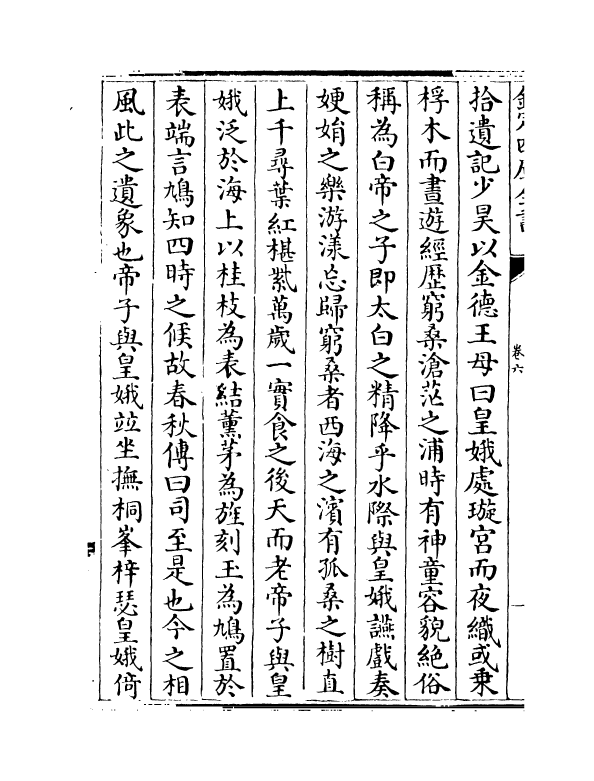 欽定四庫全書
卷六
拾遺記少昊以金德王母曰皇娥處璇宮而夜織或乗
桴木而晝遊經歴窮桑滄茫之浦時有神童容貌絶俗
稱為白帝之子即太白之精降乎水際與皇娥讌戲奏
㛹娟之樂游漾忘歸窮桑者西海之濱有孤桑之樹直
上千尋葉紅椹紫萬歲一實食之後天而老帝子與皇
娥泛於海上以桂枝為表結薰茅為旌刻玉為鳩置於
表端言鳩知四時之候故春秋傳曰司至是也今之相
風此之遺象也帝子與皇娥竝坐撫桐峯梓瑟皇娥倚